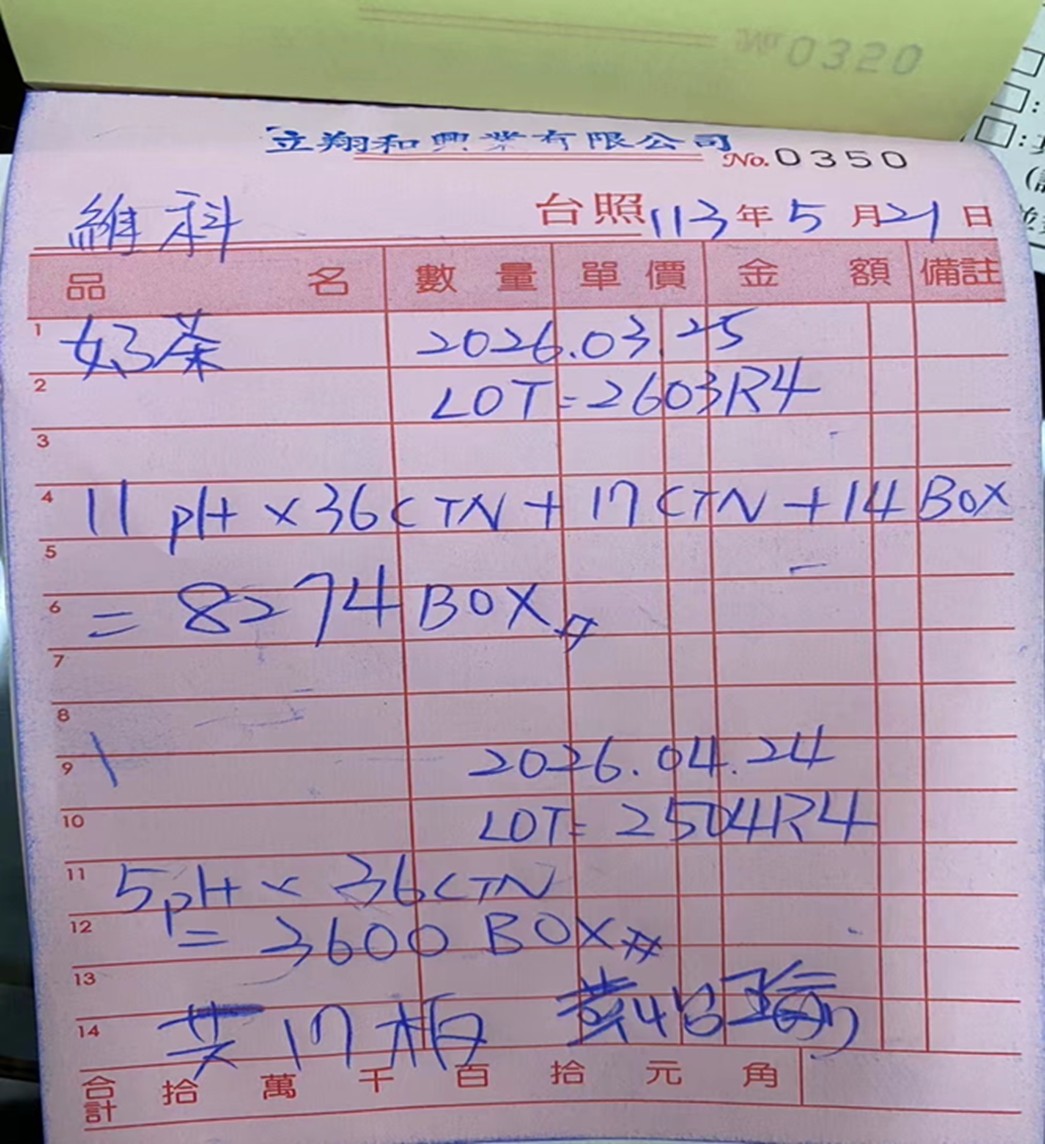 No. 0320
立翔和興業有限公司
No. 0350
維科 台照 113年5月21日
品名 數量 單價 金額 備註
1 奶茶 2026.03.25
2 LOT=2603R4
3
4 11 pH × 36CTN + 17 CTN + 14 BOX
5
6 = 8274 BOX #
7
8
9 2026.04.24
10 LOT=2504R4
11 5pH × 36CTN
12 = 3600 BOX #
13
14 共17板 黃昭瑜
合計 拾 萬 千 百 拾 元 角